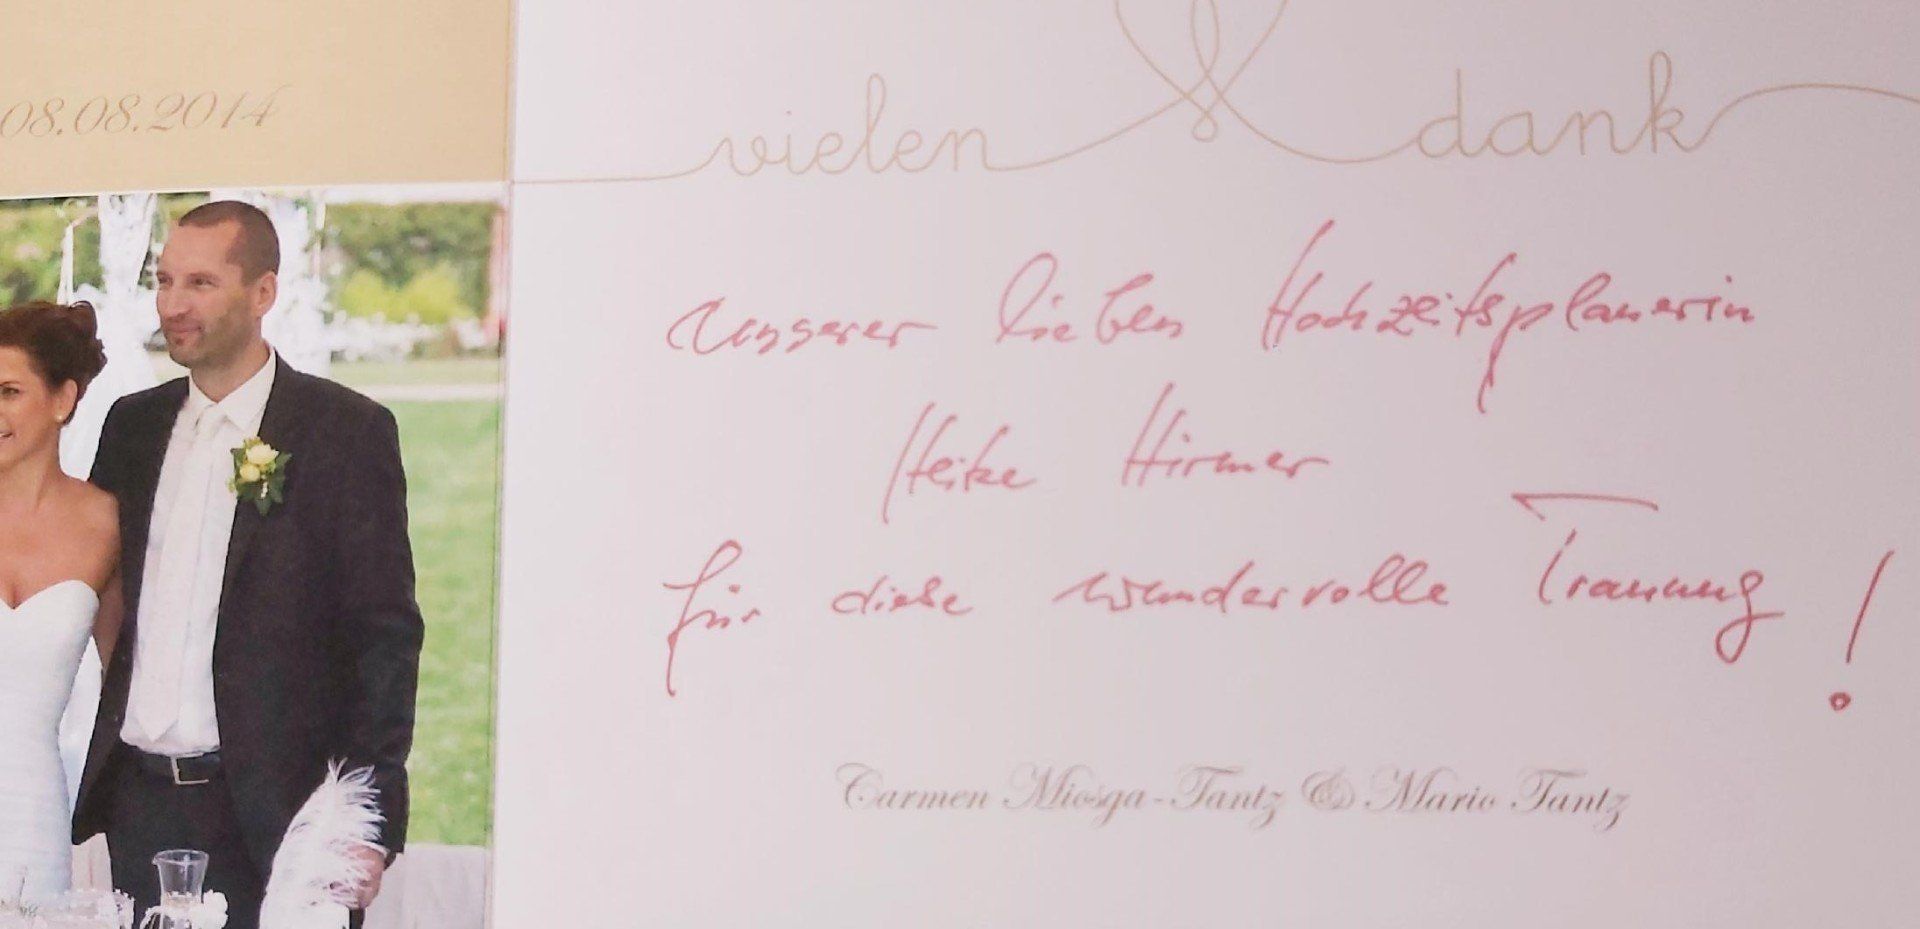 08.08.2014
vielen dank
Unserer lieben Hochzeitsplanerin
Heike Hirmer
für diese wundervolle Trauung!
Carmen Miosga-Tantz & Mario Tantz